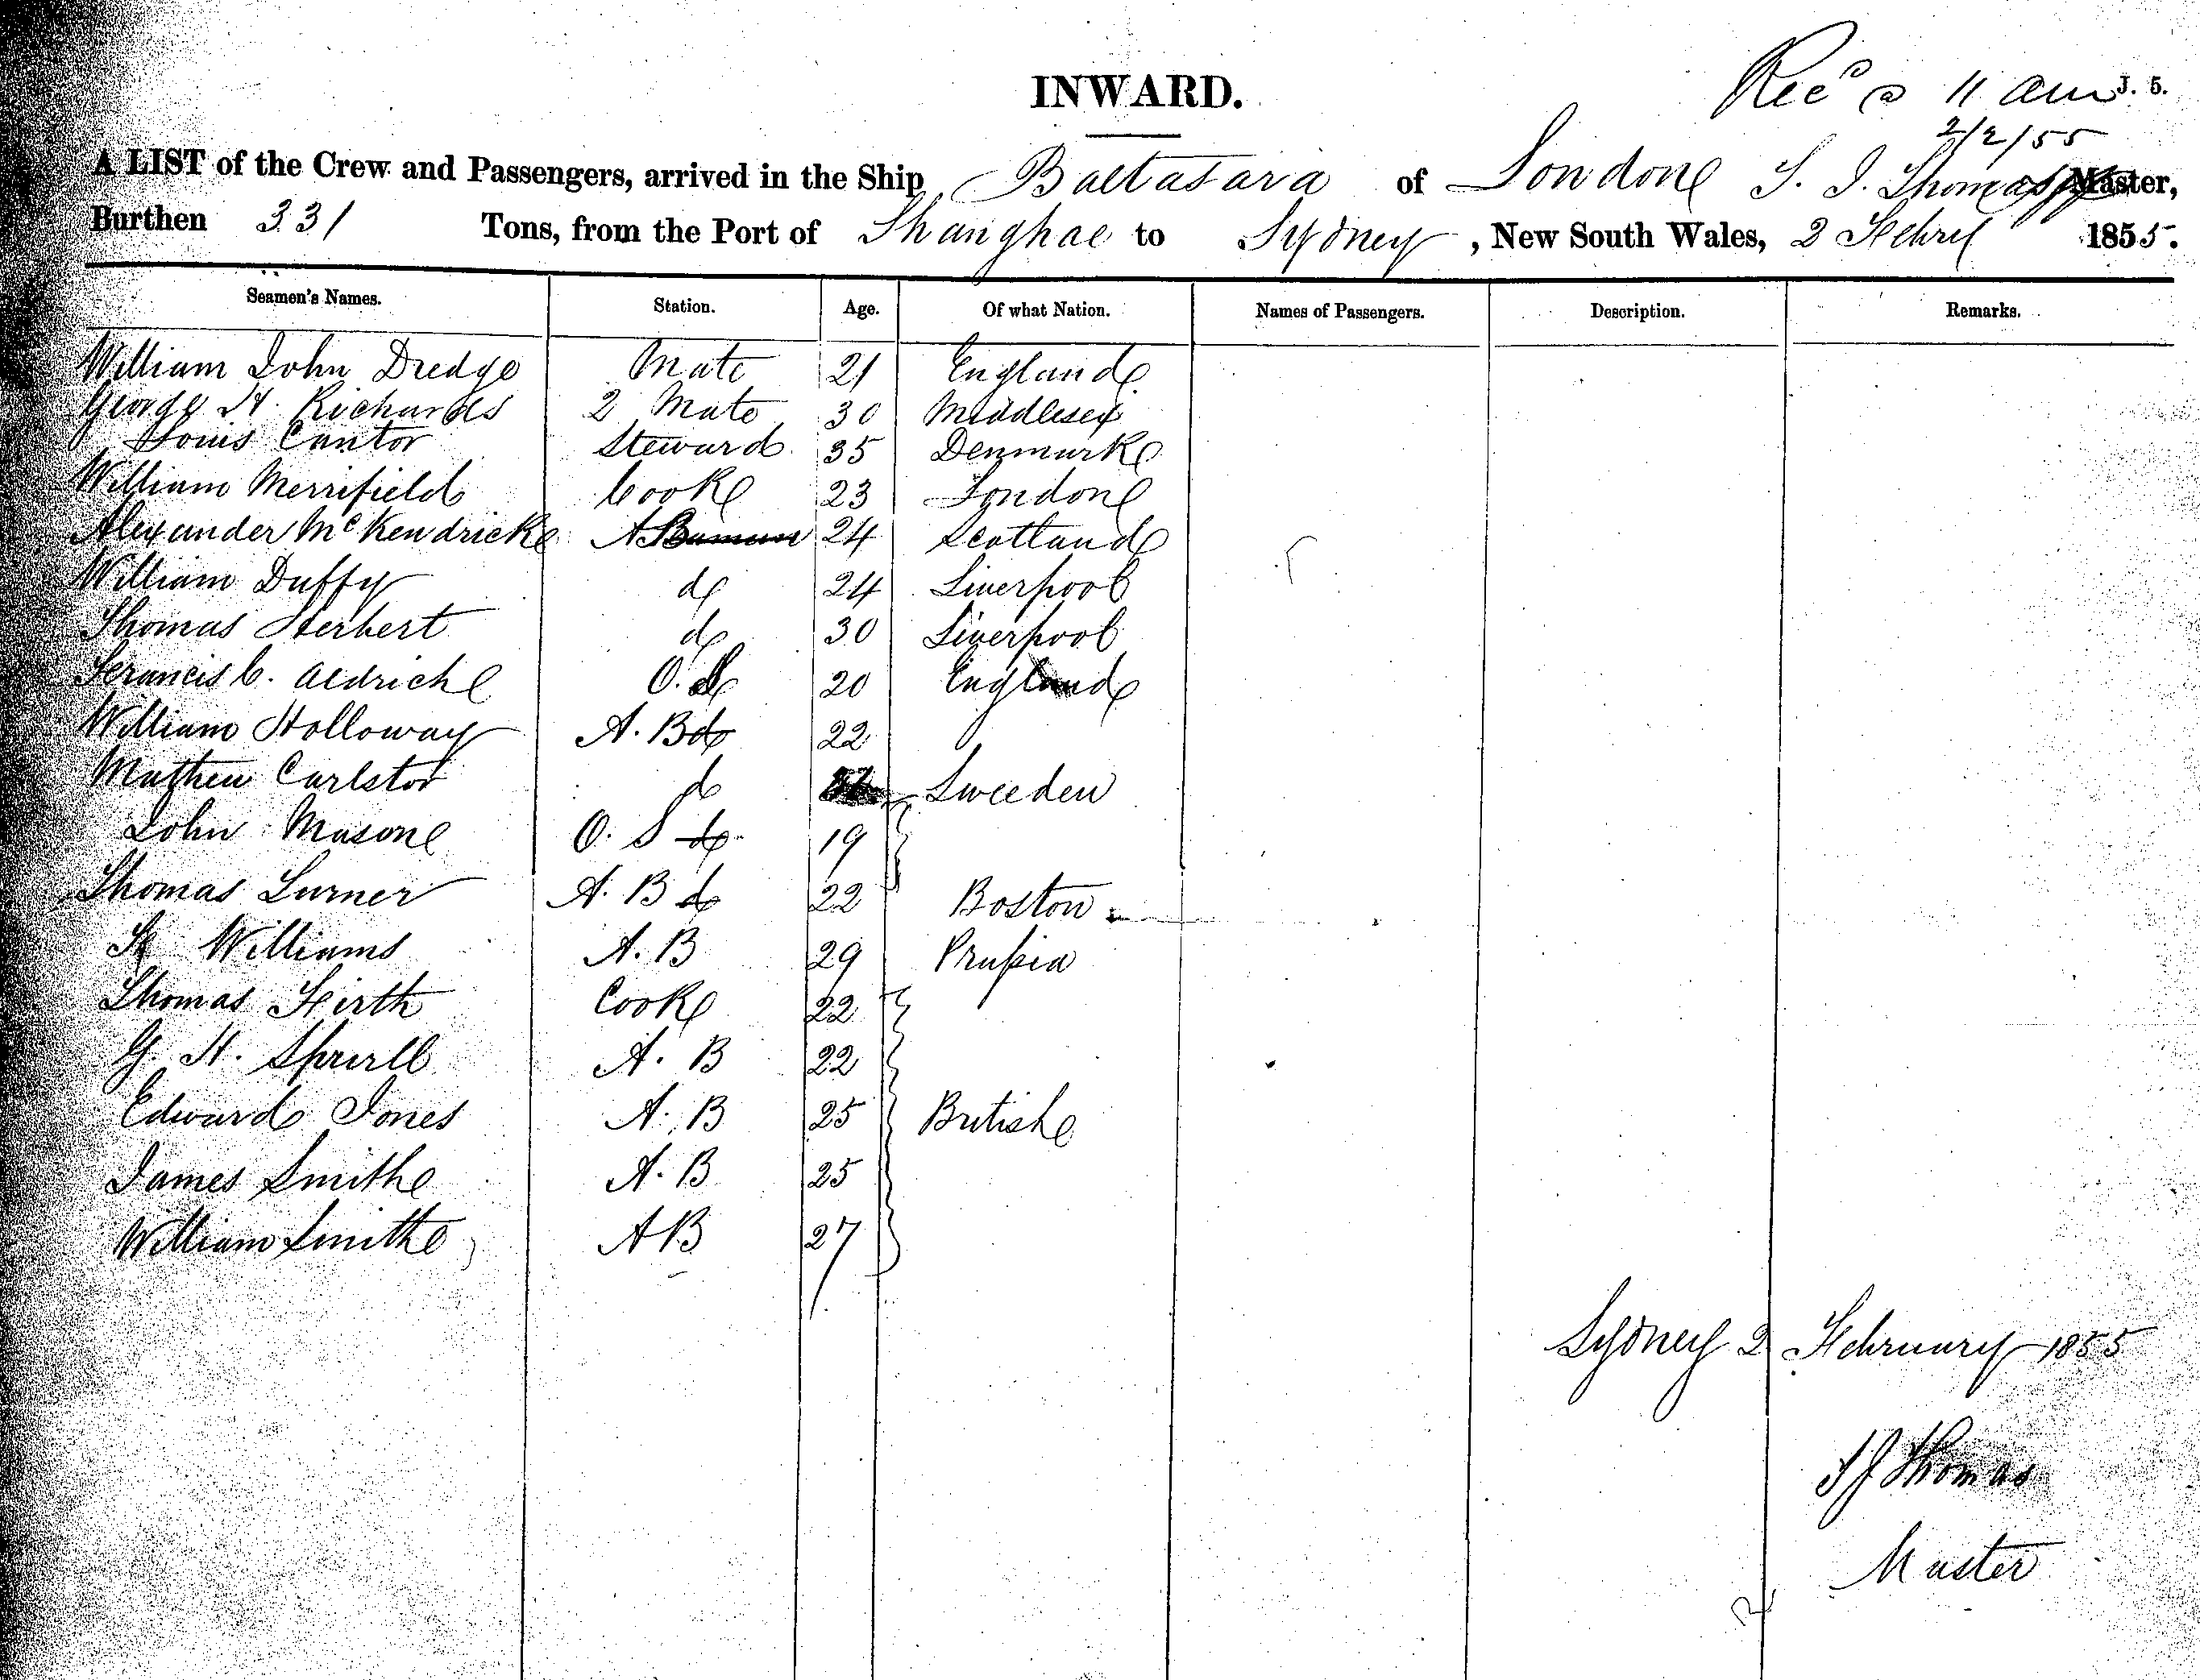 INWARD.
Recd @ 11 am J. 5.
2/2/55
A LIST of the Crew and Passengers, arrived in the Ship Baltasara of London S. J. Thomas Master,
Burthen 331 Tons, from the Port of Shanghae to Sydney, New South Wales, 2 Febry 1855.
Seamen's Names. Station. Age. Of what Nation. Names of Passengers. Description. Remarks.
William John Dredge Mate 21 England
George H. Richards 2 Mate 30 Middlesex
Louis Cantor Steward 35 Denmark
William Merrifield Cook 23 London
Alexander McKendrick AB 24 Scotland
William Duffy do 24 Liverpool
Thomas Herbert do 30 Liverpool
Francis C. Aldrich O. 20 England
William Holloway A. B do 22
Mathew Carlstor do Sweeden
John Mason O. S do 19
Thomas Turner A. B do 22 Boston
Williams A. B 29 Prussia
Thomas Firth Cook 22
G. H. Spruell A. B 22
Edward Jones A. B 25 British
James Smith A. B 25
William Smith AB 27
Sydney 2 February 1855
S J Thomas
Master